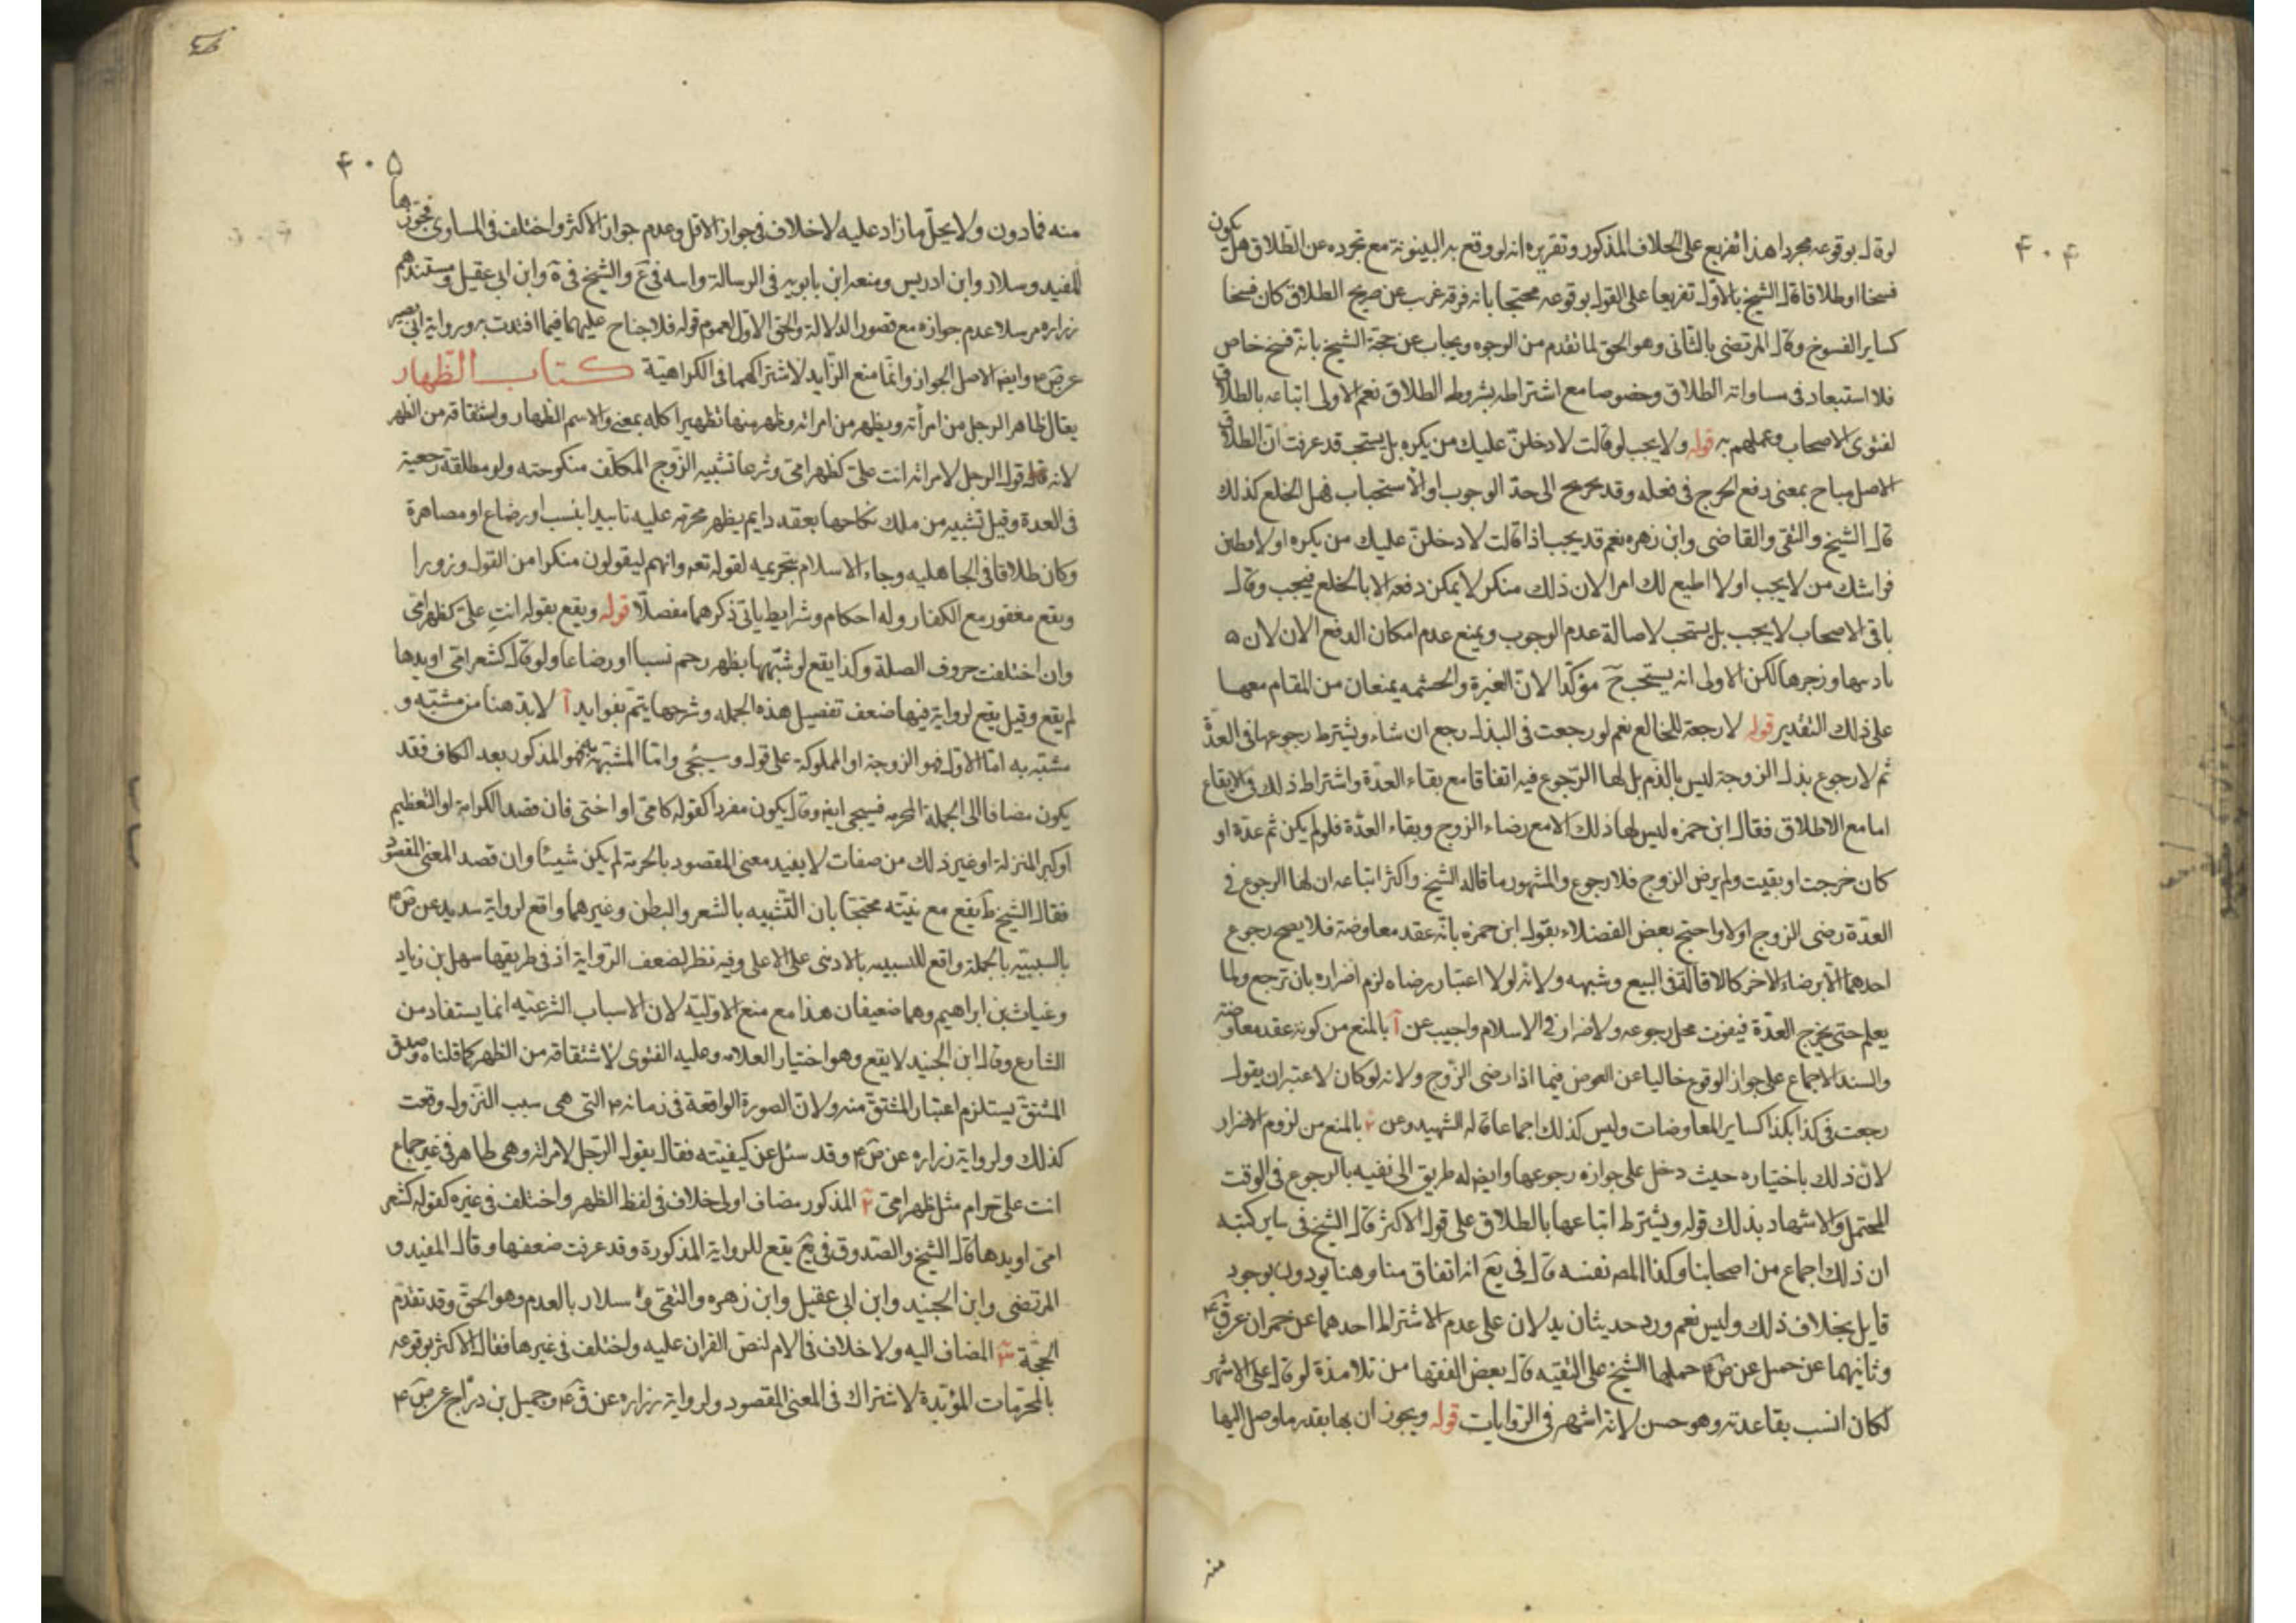 ۴۰۴
لو قال بوقوعه مجردا هذا تفريع على الخلاف المذكور وتقريره انه لو وقع به البينونة مع تجرده عن الطلاق هل يكون
فسخا او طلاقا قال الشيخ بالاول تفريعا على القول بوقوعه محتجا بانه فرقة عريت عن صريح الطلاق كان فسخا
كساير الفسوخ وقال المرتضى بالثانى وهو الحق لما تقدم من الوجوه ويجاب عن حجة الشيخ بانه فسخ خاص
فلا استبعاد فى مساواته الطلاق وخصوصا مع اشتراطه بشروط الطلاق نعم الاولى اتباعه بالطلاق
لفتوى الاصحاب وعملهم به قوله ولا يجب لو قالت لادخلن عليك من يكره بل يستحب قد عرفت ان الطلاق
الاصل مباح بمعنى رفع الحرج فى فعله وقد يخرج الى حد الوجوب او الاستحباب فهل الخلع كذلك
قال الشيخ والتقى والقاضى وابن زهره نعم قد يجب اذا قالت لادخلن عليك من يكره او لاوطئن
فراشك من لا يجب او لا اطيع لك امرا لان ذلك منكر لا يمكن دفعه الا بالخلع فيجب وقال
باقى الاصحاب لا يجب بل يستحب لاصالة عدم الوجوب ويمنع عدم امكان الدفع الان لان ۵
بادبها وزجرها لكن الاولى انه يستحب ح مؤكدا لان الغيرة والحشمه يمنعان من المقام معها
على ذلك التقدير قوله لا رجعة للخالع نعم لو رجعت فى البذل رجع ان شاء ويشترط رجوعها فى العدة
ثم لا رجوع بذل الزوجة ليس بالذم بل لها الرجوع فيه اتفاقا مع بقاء العدة واشتراط ذلك فى الايقاع
اما مع الاطلاق فقال ابن حمزه ليس لها ذلك الا مع رضاء الزوج وبقاء العدة فلو لم يكن ثم عدة او
كان خرجت او بقيت ولم يرض الزوج فلا رجوع والمشهور ما قاله الشيخ واكثر اتباعه ان لها الرجوع فى
العدة رضى الزوج اولا واحتج بعض الفضلاء بقول ابن حمزه بانه عقد معاوضة فلا يصح رجوع
احدهما الا برضاء الاخر كالاقالة فى البيع وشبهه ولانه لو لا اعتبار رضاه لزم اضراره بان ترجع ولما
يعلم حتى يخرج العدة فيفوت محل رجوعه ولا ضرار فى الاسلام واجيب عن آ بالمنع من كونه عقد معاوضة
والسند الاجماع على جواز الوقوع خاليا عن العوض فيما اذا رضى الزوج ولانه لو كان لاعتبر ان يقول
رجعت فى كذا بكذا كساير المعاوضات وليس كذلك اجماعا قاله الشهيد وعن ٢ بالمنع من لزوم الاضرار
لان ذلك باختياره حيث دخل على جوازه رجوعها وايضا له طريق الى نفيه بالرجوع فى الوقت
المحتمل والاشهاد بذلك قوله ويشترط اتباعها بالطلاق على قول الاكثر قال الشيخ فى ساير كتبه
ان ذلك اجماع من اصحابنا وكذا المص نفسه قال فى يع انه اتفاق منا وهنا يوذن بوجود
قايل بخلاف ذلك وليس نعم ورد حديثان يدلان على عدم الاشتراط احدهما عن حمران عن ق ع
وثانيهما عن جميل عن ص ع حملهما الشيخ على التقيه قال بعض الفقها من تلامذة لو قال على الاشهر
لكان انسب بقاعدته وهو حسن لانه اشهر فى الروايات قوله ويجوز ان بها بقدر ما وصل اليها
منه
۴۰۵
منه فما دون ولا يحل ما زاد عليه لا خلاف فى جواز الاقل وعدم جواز الاكثر واختلف فى المساوى فجوزها
المفيد وسلار وابن ادريس ومنعه ابن بابويه فى الرسالة وابنه فى ع والشيخ فى ة وابن ابى عقيل ومستندهم
زراره مرسلا عدم جوازه مع قصور الدلالة والحق الاول لعموم قوله فلا جناح عليهما فيما افتدت به ورواية ابى بصير
عن ص ع وايضا الاصل الجواز وانما منع الزايد لاشتراكهما فى الكراهية كتاب الظهار
يقال ظاهر الرجل من امرأته ويظهر من امراته وظهر منها تظهيرا كله بمعنى والاسم الظهار واشتقاقه من الظهر
لانه قول الرجل لامراته انت على كظهر امى وشرعا تشبيه الزوج المكلف منكوحته ولو مطلقة رجعية
فى العدة وقيل تشبيه من ملك نكاحها بعقد دايم بظهر محرمه عليه تابيدا بنسب او رضاع او مصاهرة
وكان طلاقا فى الجاهليه وجاء الاسلام بتحريمه لقوله تعه وانهم ليقولون منكرا من القول وزورا
ويقع مغفور مع الكفار وله احكام وشرايط ياتى ذكرهما مفصلا قوله ويقع بقوله انت على كظهر امى
وان اختلفت حروف الصلة وكذا يقع لو شبهها بظهر رحم نسبا او رضاعا ولو قال كشعر امى او يدها
لم يقع وقيل يقع لرواية فيها ضعف تفصيل هذه الجمله وشرحها يتم بفوايد آ لا بد هنا من مشبه و
مشبه به اما الاول فهو الزوجة او المملوكة على قول وسيجى واما المشبه به فهو المذكور بعد الكاف فقد
يكون مضافا الى الجملة المحرمه فسيجى ايضا وقد يكون مفردا كقوله كامى او اختى فان قصد الكرامة او التعظيم
او كبر المنزلة او غير ذلك من صفات لا يفيد معنى المقصود بالحرمة لم يكن شيئا وان قصد المعنى المقصود
فقال الشيخ ط يقع مع نيته محتجا بان التشبيه بالشعر والبطن وغيرهما واقع لرواية سدير عن ص ع
بالتشبيه بالجملة واقع للتنبيه بالادنى على الاعلى وفيه نظر لضعف الرواية اذ فى طريقها سهل بن زياد
وغياث بن ابراهيم وهما ضعيفان هذا مع منع الاولية لان الاسباب الشرعيه انما يستفاد من
الشارع وقال ابن الجنيد لا يقع وهو اختيار العلامه وعليه الفتوى لاشتقاقه من الظهر كما قلناه وصدق
المشتق يستلزم اعتبار المشتق منه ولان الصورة الواقعة فى زمانه ع التى هى سبب النزول وقعت
كذلك ولرواية زراره عن ص ع وقد سئل عن كيفيته فقال يقول الرجل لامراته وهى طاهر فى غير جماع
انت على حرام مثل ظهر امى ٢ المذكور مضاف اولى خلاف فى لفظ الظهر واختلف فى غيره كقوله كشعر
امى او يدها قال الشيخ والصدوق فى يع يقع للرواية المذكورة وقد عرفت ضعفها وقال المفيد و
المرتضى وابن الجنيد وابن ابى عقيل وابن زهره والتقى و سلار بالعدم وهو الحق وقد تقدم
الحجة ٣ المضاف اليه ولا خلاف فى الام لنص القران عليه واختلف فى غيرها فقال الاكثر بوقوعه
بالمحرمات المؤبدة لاشتراك فى المعنى المقصود ولرواية زراره عن ق ع وجميل بن دراج عن ص ع